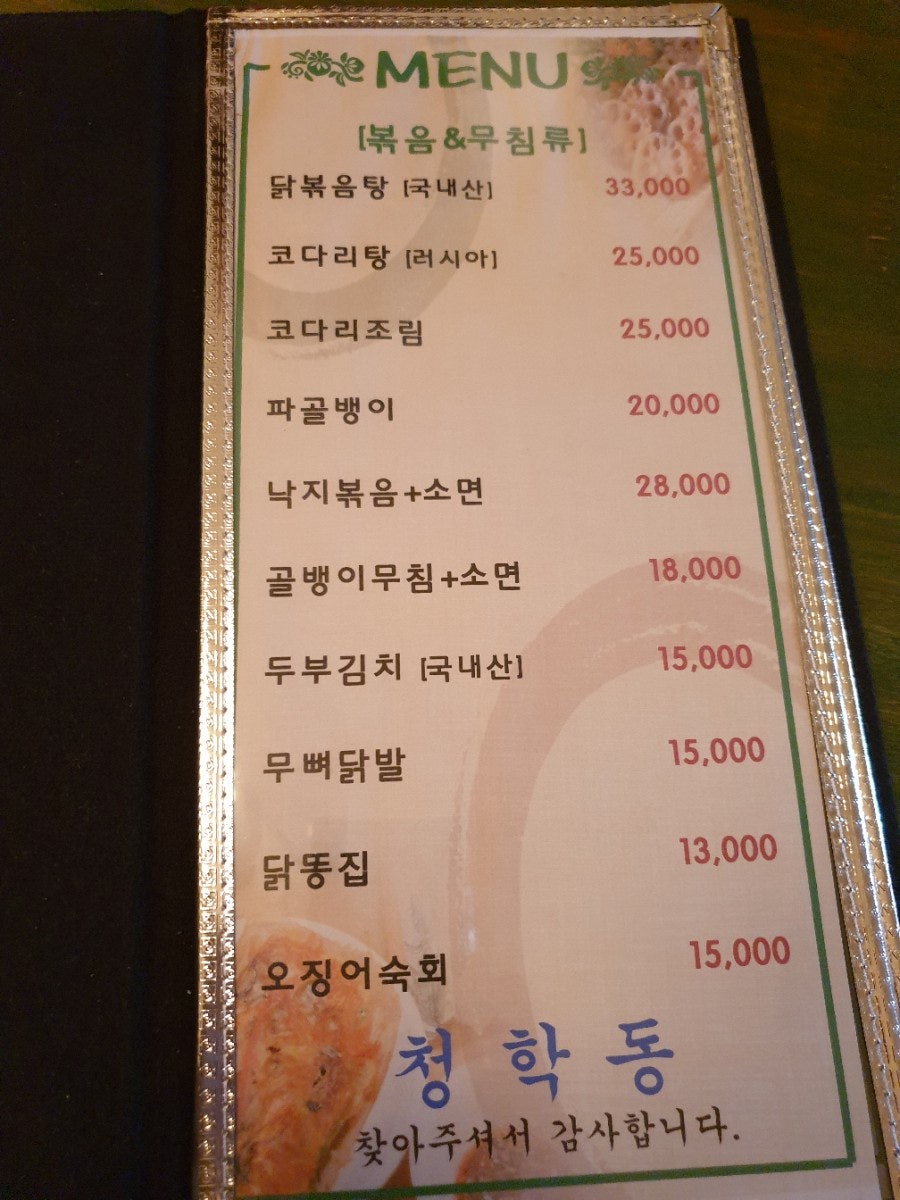 MENU
[볶음&무침류]
닭볶음탕 [국내산] 33,000
코다리탕 [러시아] 25,000
코다리조림 25,000
파골뱅이 20,000
낙지볶음+소면 28,000
골뱅이무침+소면 18,000
두부김치 [국내산] 15,000
무뼈닭발 15,000
닭똥집 13,000
오징어숙회 15,000
청학동
찾아주셔서 감사합니다.